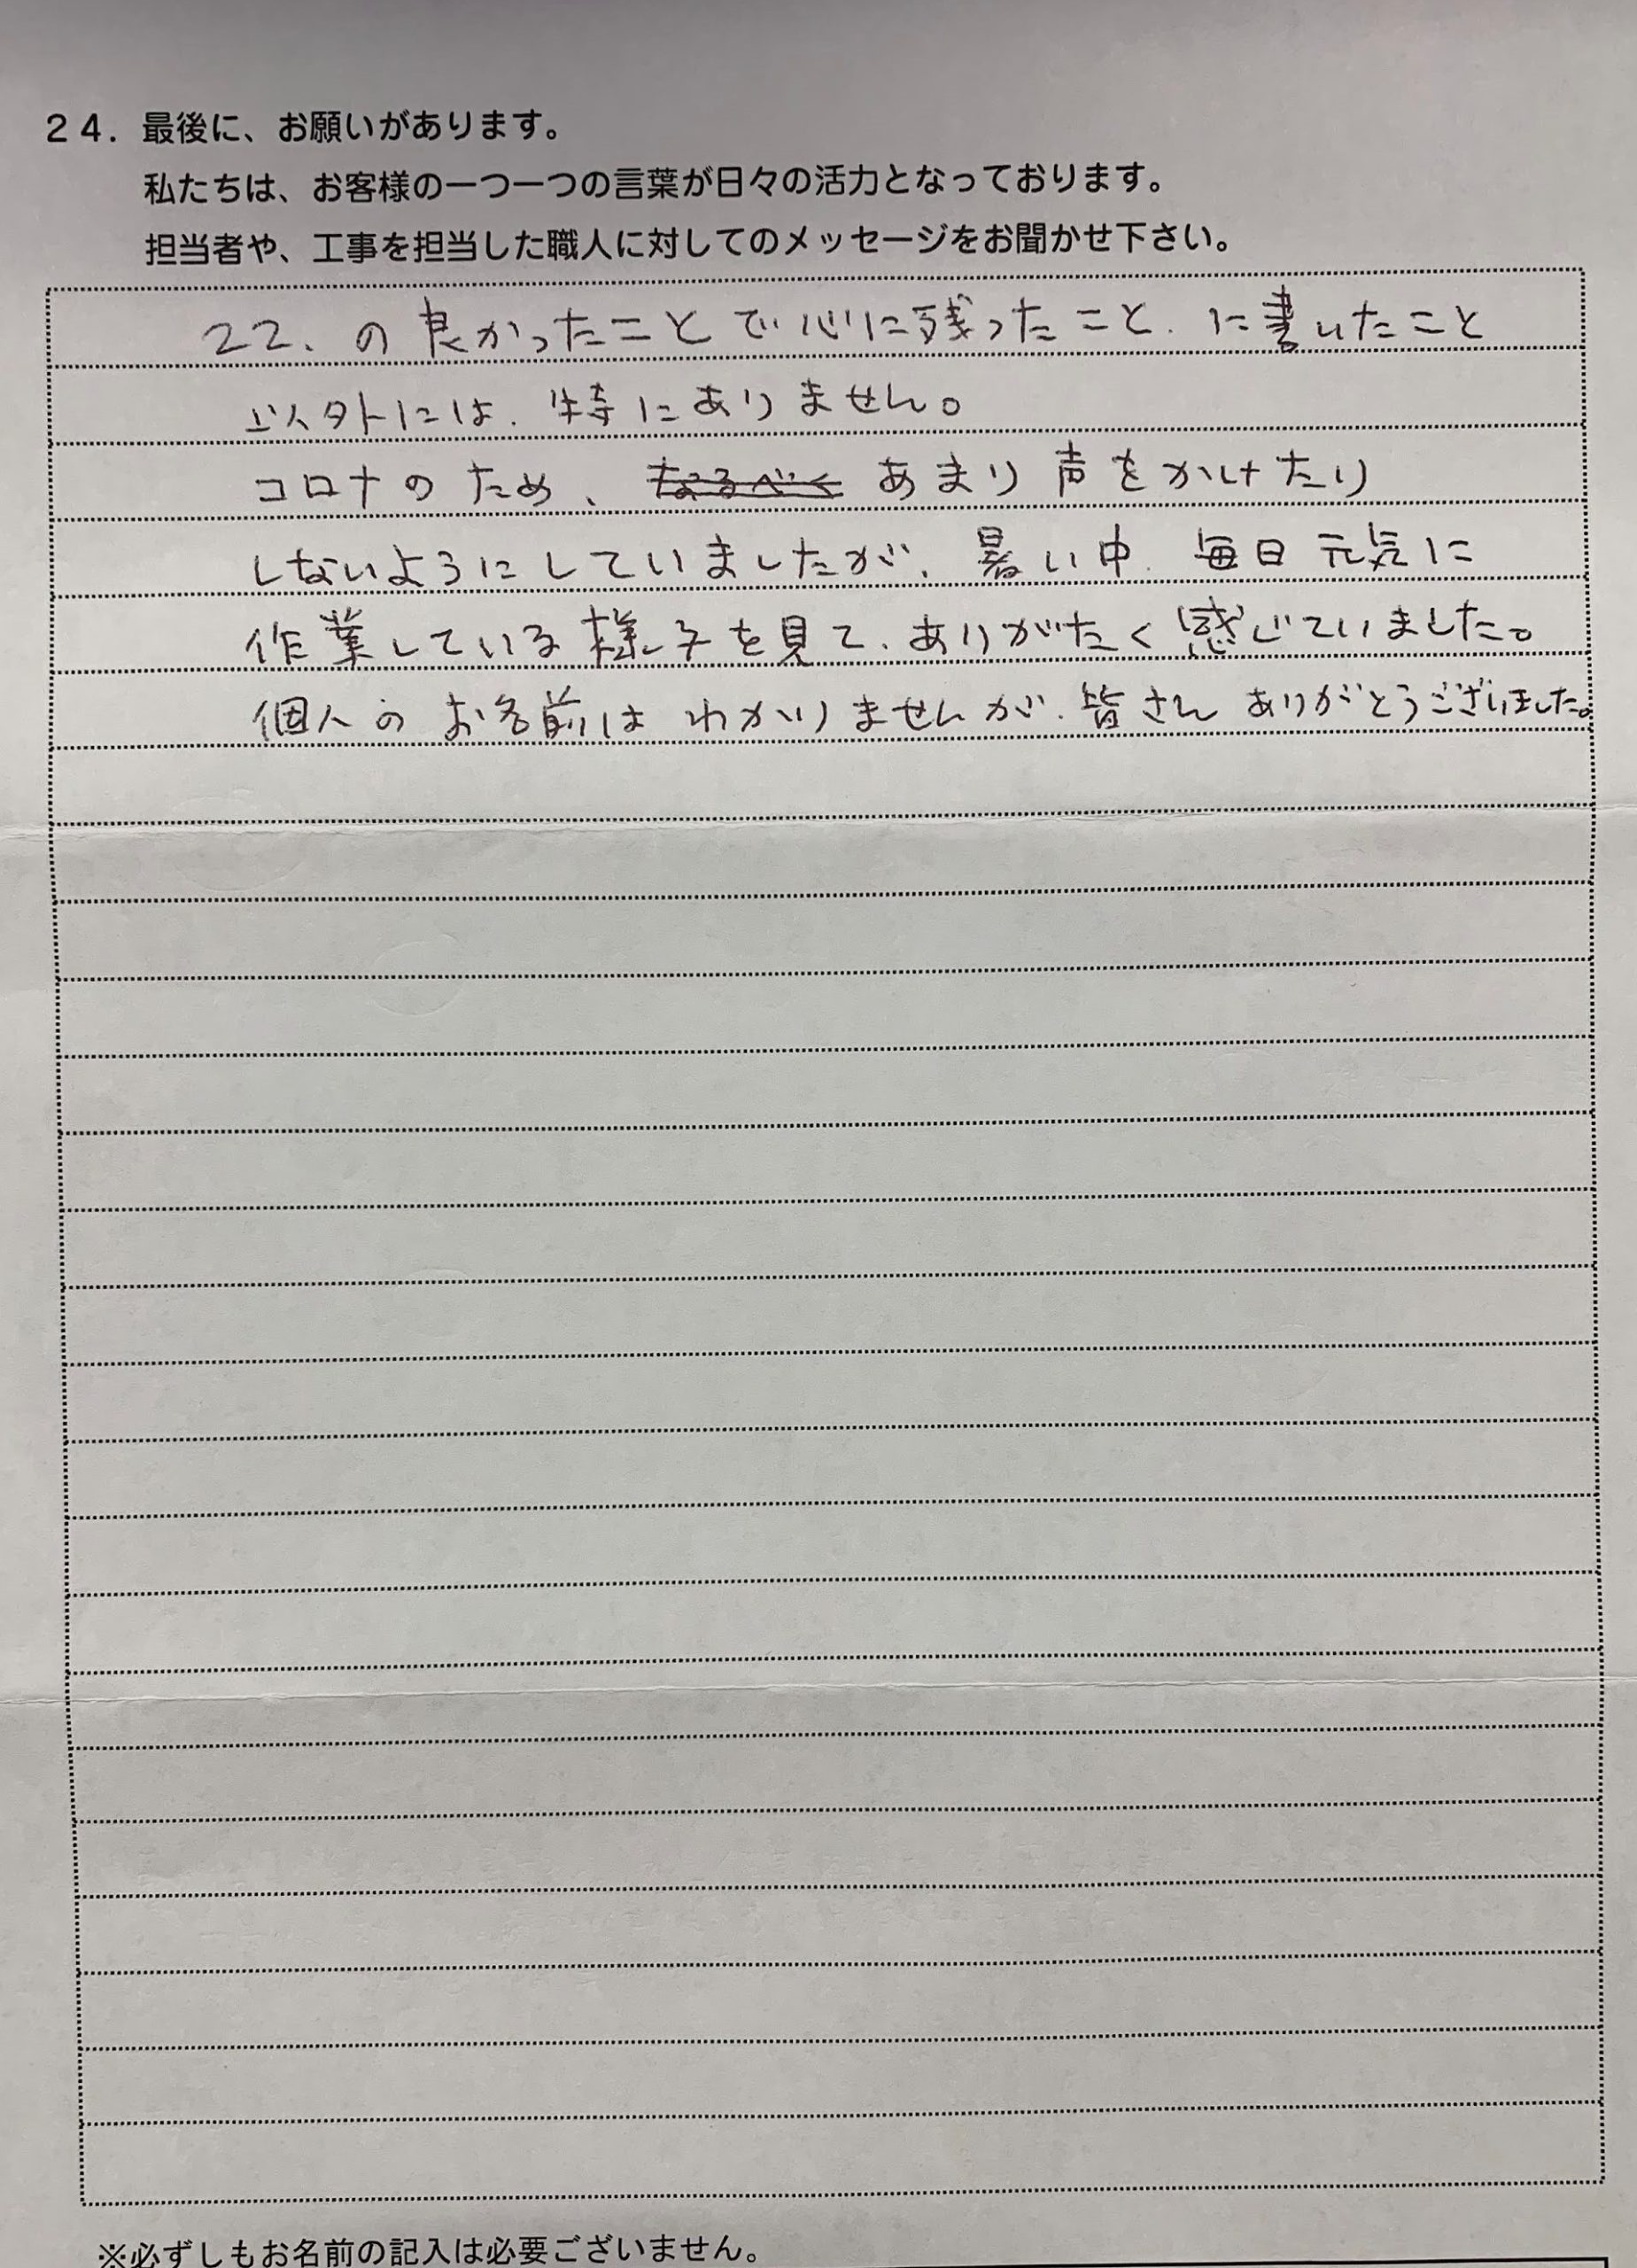 24．最後に、お願いがあります。
私たちは、お客様の一つ一つの言葉が日々の活力となっております。
担当者や、工事を担当した職人に対してのメッセージをお聞かせ下さい。
22、の良かったことで心に残ったこと、に書いたこと
以外には、特にありません。
コロナのため、なるべく あまり声をかけたり
しないようにしていましたが、暑い中、毎日元気に
作業している様子を見て、ありがたく感じていました。
個人のお名前はわかりませんが、皆さんありがとうございました。
※必ずしもお名前の記入は必要ございません。